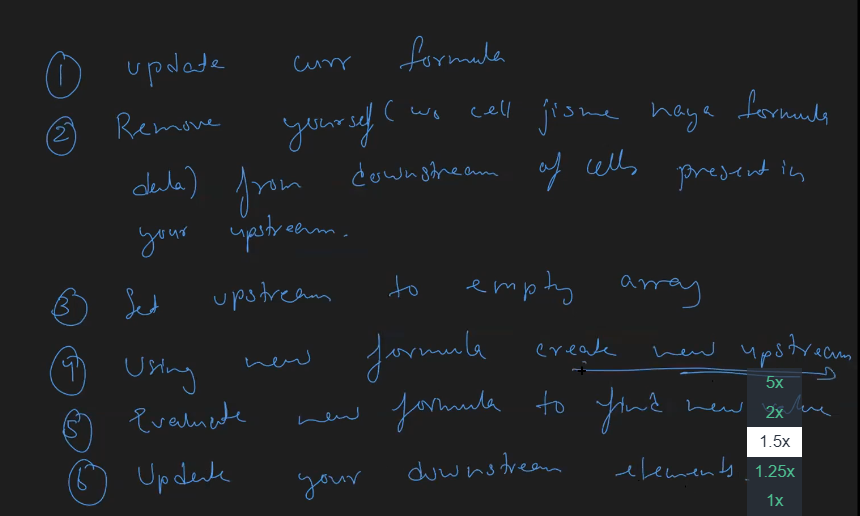 ① update curr formula
② Remove yourself (wo cell jisme naya formula
dala) from downstream of cells present in
your upstream.
③ Set upstream to empty array
④ Using new formula create new upstream
⑤ Evaluate new formula to find new value
⑥ Update your downstream elements.
5x
2x
1.5x
1.25x
1x